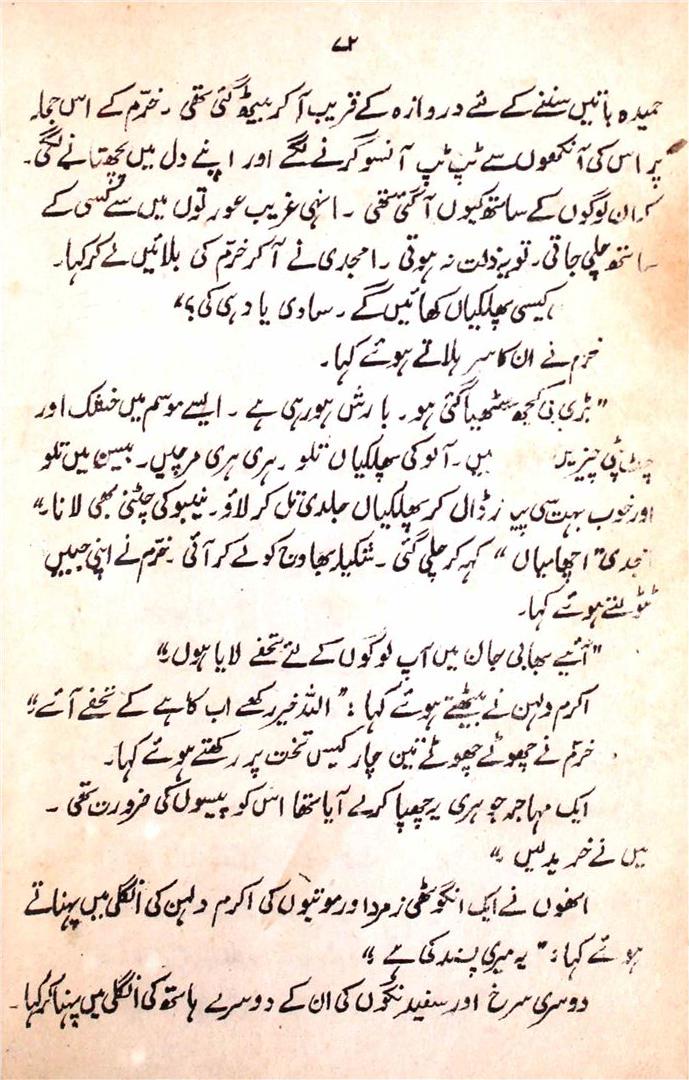 ۷۲
حمیدہ باتیں سننے کے لئے دروازہ کے قریب آکر بیٹھ گئی تھی۔ خرّم کے اس جملہ
پر اس کی آنکھوں سے ٹپ ٹپ آنسو گرنے لگے اور اپنے دل میں پچھتانے لگی۔
کہ ان لوگوں کے ساتھ کیوں آگئی تھی۔ انہی غریب عورتوں میں سے کسی کے
ساتھ چلی جاتی۔ تو یہ ذلت نہ ہوتی۔ امجدی نے آکر خرّم کی بلائیں لے کر کہا۔
کیسی پھلکیاں کھائیں گے۔ سادی یا دہی کی؟"
خرم نے ان کا سر ہلاتے ہوئے کہا۔
"بڑی بی کچھ سٹھیا گئی ہو۔ بارش ہو رہی ہے۔ ایسے موسم میں خشک اور
چٹ پٹی چیزیں ہیں۔ آلو کی پھلکیاں تلو۔ ہری ہری مرچیں۔ بیسن میں تلو
اور خوب بہت سی پیاز ڈال کر پھلکیاں جلدی تل کر لاؤ۔ نیبو کی چٹنی بھی لانا۔"
امجدی "اچھا میاں" کہہ کر چلی گئی۔ شکیلہ بھاوج کو لے کر آئی۔ خرّم نے اپنی جیبیں
ٹٹولتے ہوئے کہا۔
"آئیے بھابی جان میں آپ لوگوں کے لئے تحفے لایا ہوں۔"
اکرم دلہن نے بیٹھتے ہوئے کہا: "اللہ خیر رکھے اب کاہے کے تحفے آئے۔"
خرّم نے چھوٹے چھوٹے تین چار کیس تخت پر رکھتے ہوئے کہا۔
ایک مہاجر جوہری یہ چھپا کر لے آیا تھا اس کو پیسوں کی ضرورت تھی۔
میں نے خرید لیں۔"
انھوں نے ایک انگوٹھی زمرد اور موتیوں کی اکرم دلہن کی انگلی میں پہناتے
ہوئے کہا: "یہ میری پسند کی ہے۔"
دوسری سرخ اور سفید نگوں کی ان کے دوسرے ہاتھ کی انگلی میں پہنا کر کہا۔